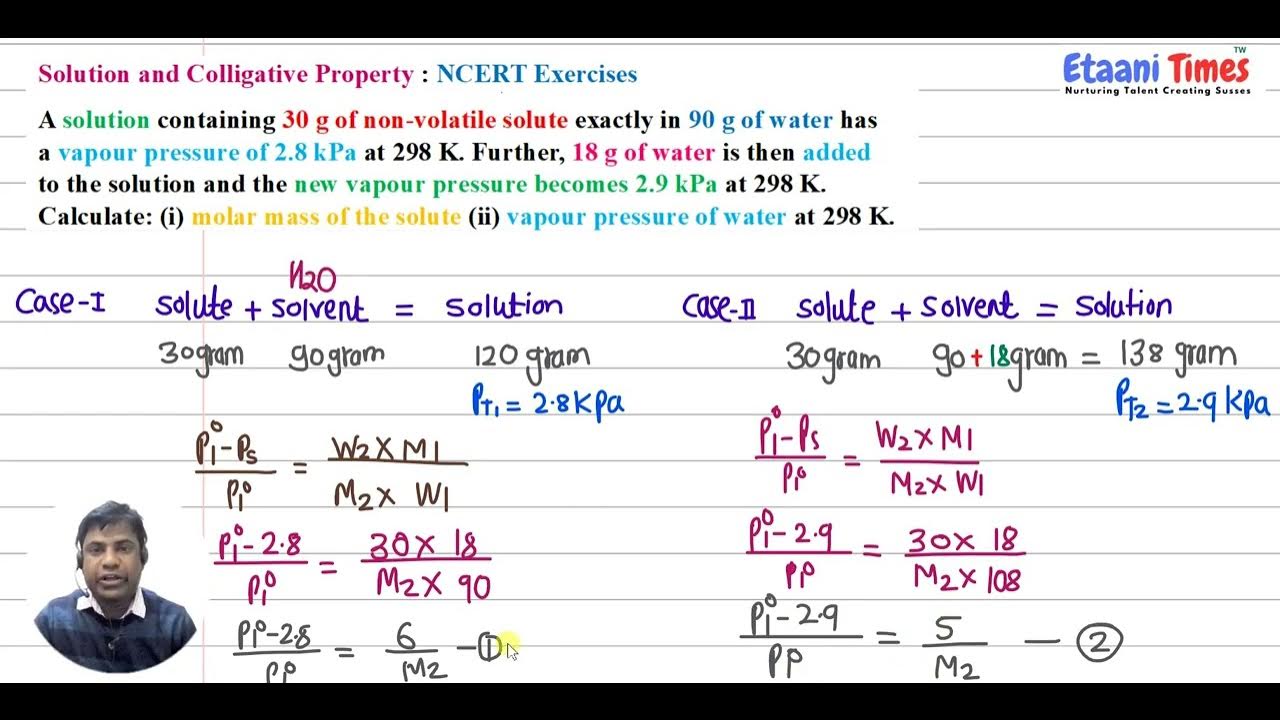 Etaani Times TW
Nurturing Talent Creating Susses
Solution and Colligative Property : NCERT Exercises
A solution containing 30 g of non-volatile solute exactly in 90 g of water has
a vapour pressure of 2.8 kPa at 298 K. Further, 18 g of water is then added
to the solution and the new vapour pressure becomes 2.9 kPa at 298 K.
Calculate: (i) molar mass of the solute (ii) vapour pressure of water at 298 K.
H2O
Case-I solute + solvent = solution
30gram 90gram 120gram
PT1 = 2.8kPa
P1⁰-Ps / P1⁰ = W2 × M1 / M2 × W1
P1⁰-2.8 / P1⁰ = 30 × 18 / M2 × 90
P1⁰-2.8 / P1⁰ = 6 / M2 -①
Case-II solute + solvent = solution
30gram 90+18gram = 138 gram
PT2 = 2.9 kPa
P1⁰-Ps / P1⁰ = W2 × M1 / M2 × W1
P1⁰-2.9 / P1⁰ = 30 × 18 / M2 × 108
P1⁰-2.9 / P1⁰ = 5 / M2 - ②